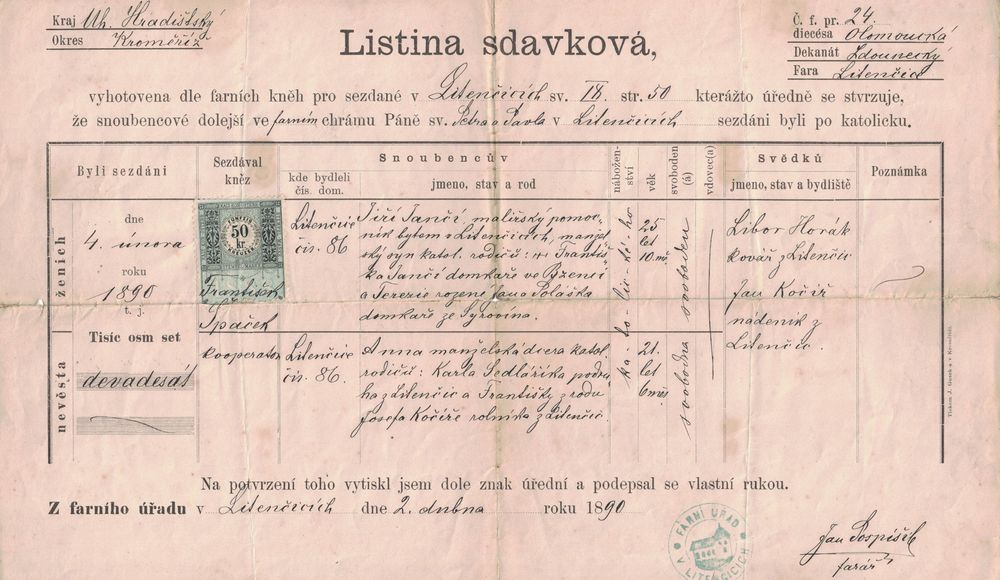 Kraj Uh. Hradišťský
Okres Kroměříž
Č. f. pr. 24.
diecésa Olomoucká
Dekanát Zdounecký
Fara Litenčic
Listina sdavková,
vyhotovena dle farních kněh pro sezdané v Litenčicích sv. IV. str. 50 kterážto úředně se stvrzuje,
že snoubencové dolejší ve farním chrámu Páně sv. Petra a Pavla v Litenčicích sezdáni byli po katolicku.
Byli sezdáni
Sezdával
kněz
Snoubencův
kde bydleli
čís. dom.
jméno, stav a rod
nábožen-
ství
věk
svoboden
(á)
vdovec(a)
Svědků
jméno, stav a bydliště
Poznámka
ženich
dne
4. února
roku
1890
t. j.
Tisíc osm set
devadesát
nevěsta
50
kr.
František
Spáček
kooperator
Litenčic
čís. 86
Jiří Jančí malířský pomoc-
ník bytem v Litenčicích, manžel-
ský syn katol. rodičů: Františ-
ka Jančí domkaře ve Bzenci
a Terezie rozené Jana Poláška
domkaře ze Syrovína.
ka-to-lic-ké-ho
25
let
10. měs
svoboden
Libor Horák
kovář z Litenčic
Jan Kočíř
nádeník z
Litenčic.
Litenčic
čís. 86.
Anna manželská dcera katol.
rodičů: Karla Sedlaříka podru-
ha z Litenčic a Františky z rodu
Josefa Kočíře rolníka z Litenčic.
21.
let
6 měs
svobodna
Na potvrzení toho vytiskl jsem dole znak úřední a podepsal se vlastní rukou.
Z farního úřadu v Litenčicích dne 2. dubna roku 1890
FARNÍ ÚŘAD
V LITENČICÍCH
Jan Pospíšil
farář